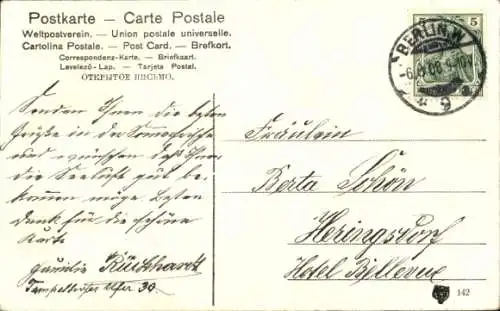 Postkarte — Carte Postale
Weltpostverein. — Union postale universelle.
Cartolina Postale. — Post Card. — Brefkort.
Correspondenz-Karte. — Briefkaart.
Levelező-Lap. — Tarjeta Postal.
ОТКРЫТОЕ ПИСЬМО.
5 5
BERLIN. W.
9
Senden Ihnen die besten
Grüße in der Sommerfrische
und wünschen daß Ihnen
die Seeluft gut be-
kommen möge. Besten
Dank für die schöne
Karte
Familie Rückhardt
Tempelhofer Ufer 30.
Fräulein
Berta Schön
Heringsdorf
Hotel Bellevue
142